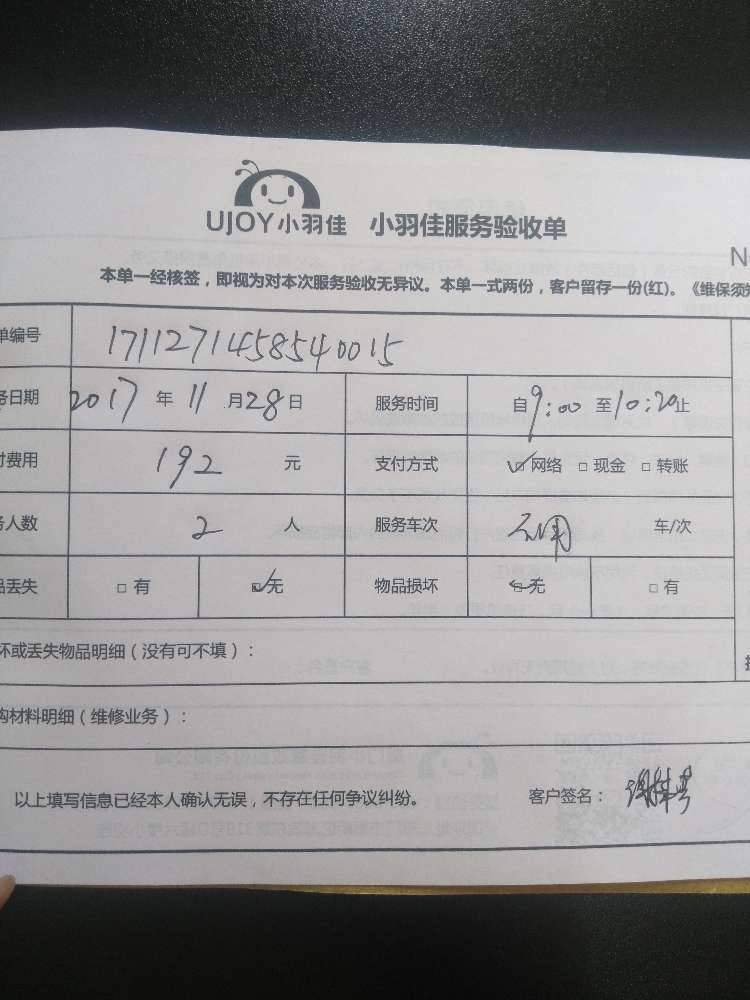 UJOY小羽佳 小羽佳服务验收单
N
本单一经核签，即视为对本次服务验收无异议。本单一式两份，客户留存一份(红)。《维保须知
单编号 1711271458540015
务日期 2017 年 11 月 28 日 服务时间 自 9:00 至 10:20 止
付费用 192 元 支付方式 网络 现金 转账
务人数 2 人 服务车次 车/次
品丢失 有 无 物品损坏 无 有
坏或丢失物品明细（没有可不填）：
购材料明细（维修业务）：
以上填写信息已经本人确认无误，不存在任何争议纠纷。 客户签名：